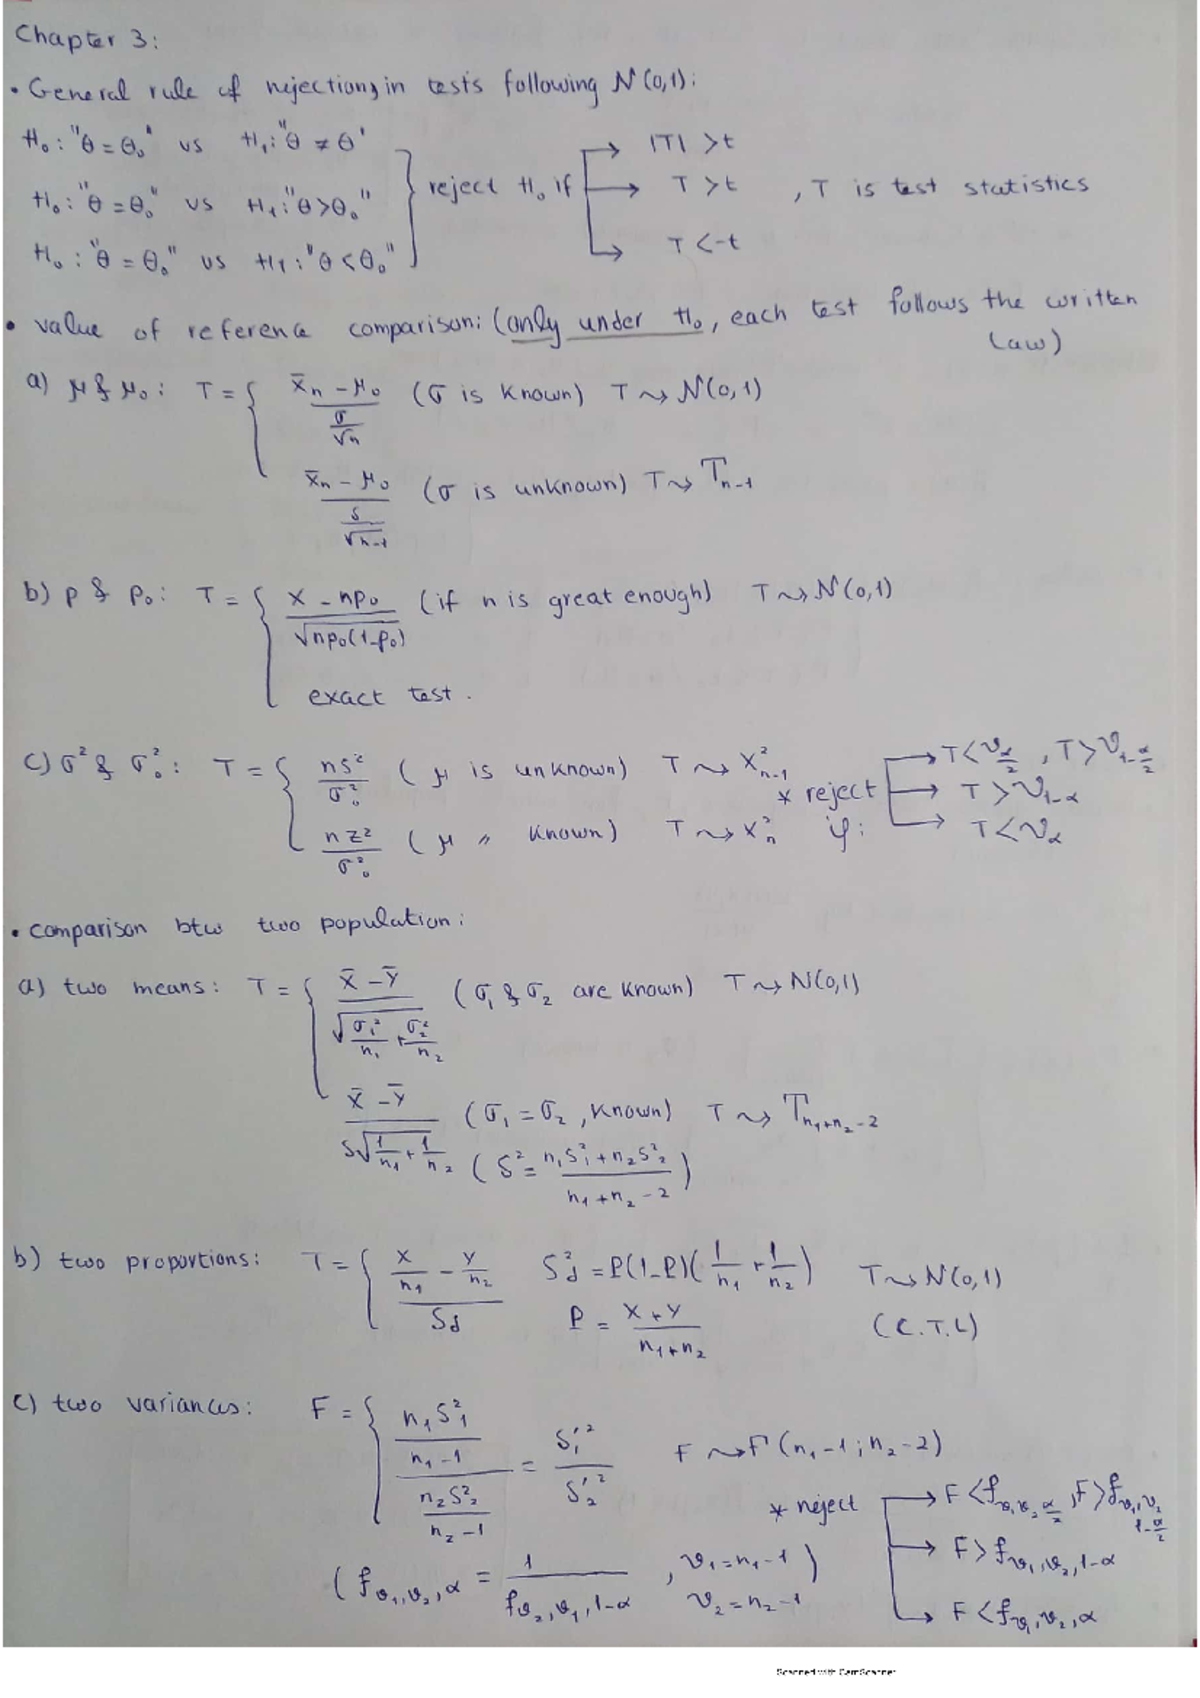 Chapter 3:
• General rule of rejection, in tests following N(0,1):
H₀: "θ = θ₀" vs H₁: "θ ≠ θ' } reject H₀ if → |T| > t
H₀: "θ = θ₀" vs H₁: "θ > θ₀" → T > t , T is test statistics
H₀: "θ = θ₀" vs H₁: "θ < θ₀" → T < -t
• value of reference comparison: (only under H₀, each test follows the written law)
a) μ & μ₀: T = { (x̄ₙ - μ₀) / (σ/√n) (σ is known) T ⇝ N(0,1)
(x̄ₙ - μ₀) / (s/√(n-1)) (σ is unknown) T ⇝ Tₙ₋₁
b) p & p₀: T = { (X - np₀) / √(np₀(1-p₀)) (if n is great enough) T ⇝ N(0,1)
exact test.
c) σ² & σ₀²: T = { ns²/σ₀² (μ is unknown) T ⇝ X²ₙ₋₁
nz²/σ₀² (μ " known) T ⇝ X²ₙ
* reject if: → T < v_{α/2} , T > v_{1-α/2}
→ T > v_{1-α}
→ T < v_α
• comparison btw two population:
a) two means: T = { (X̄ - Ȳ) / √(σ₁²/n₁ + σ₂²/n₂) (σ₁ & σ₂ are known) T ⇝ N(0,1)
(X̄ - Ȳ) / (S√(1/n₁ + 1/n₂)) (σ₁ = σ₂, known) T ⇝ T_{n₁+n₂-2}
(S² = (n₁S₁² + n₂S₂²) / (n₁+n₂-2))
b) two proportions: T = { (X/n₁ - Y/n₂) / S_d S_d² = P(1-P)(1/n₁ + 1/n₂) T ⇝ N(0,1)
P = (X+Y) / (n₁+n₂) (C.T.L)
c) two variances: F = { (n₁S₁²/(n₁-1)) / (n₂S₂²/(n₂-1)) = S₁'²/S₂'² F ⇝ F(n₁-1; n₂-2)
* reject → F < f_{v₁,v₂,α/2} , F > f_{v₁,v₂,1-α/2}
→ F > f_{v₁,v₂,1-α}
→ F < f_{v₁,v₂,α}
(f_{v₁,v₂,α} = 1 / f_{v₂,v₁,1-α} , v₁ = n₁-1
v₂ = n₂-1)
Scanned with CamScanner